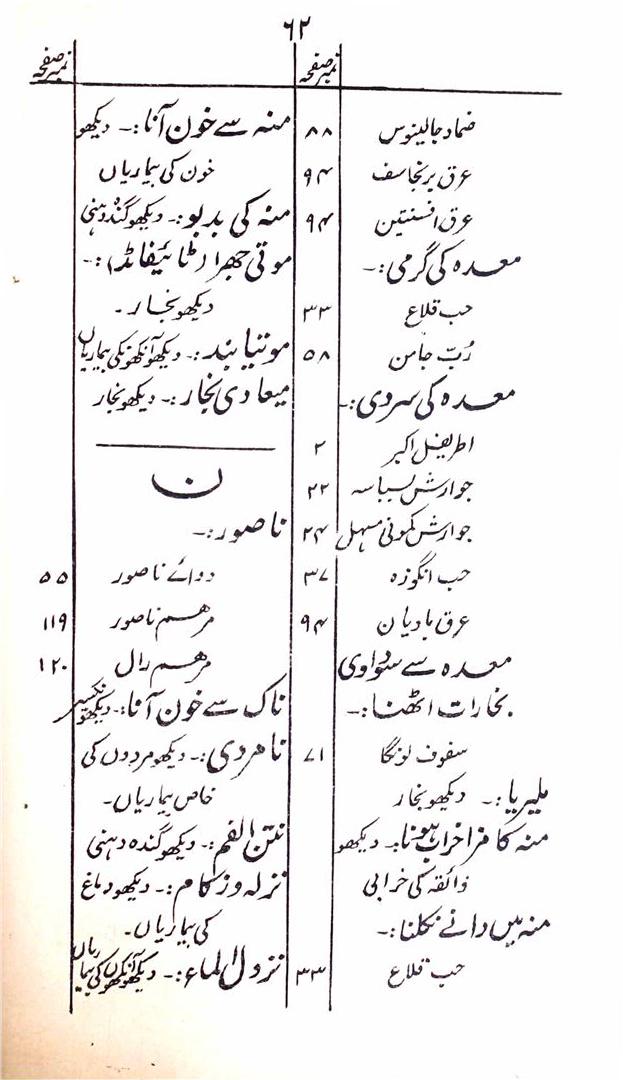 ۶۲
نمبر صفحہ
ضماد جالینوس ۸۸
عرق برنجاسف ۹۴
عرق افسنتین ۹۴
معدہ کی گرمی:۔
حب قلاع ۳۳
رُبّ جامن ۵۸
معدہ کی سردی:۔
اطریفل اکبر ۲
جوارش بسباسہ ۲۲
جوارش کمونی مسہل ۲۴
حب انگوزہ ۳۷
عرق بادیان ۹۴
معدہ سے سوداوی
بخارات اٹھنا:۔
سفوف لونگا ۷۱
ملیریا:۔ دیکھو بخار
منہ کا مزا خراب ہونا:۔ دیکھو
ذائقہ کی خرابی
منہ میں دانے نکلنا:۔
حب قلاع ۳۳
نمبر صفحہ
منہ سے خون آنا:۔ دیکھو
خون کی بیماریاں
منہ کی بدبو:۔ دیکھو گندہ دہنی
موتی جھرا (ٹائیفائڈ):۔
دیکھو بخار۔
موتیا بند:۔ دیکھو آنکھونکی بیماریاں
میعادی بخار:۔ دیکھو بخار
ن
ناصور:۔
دوائے ناصور ۵۵
مرہم ناصور ۱۱۹
مرہم رال ۱۲۰
ناک سے خون آنا:۔ دیکھو نکسیر
نامردی:۔ دیکھو مردوں کی
خاص بیماریاں۔
نتن الفم:۔ دیکھو گندہ دہنی
نزلہ و زکام:۔ دیکھو دماغ
کی بیماریاں۔
نزول الماء:۔ دیکھو آنکھوں کی بیماریاں